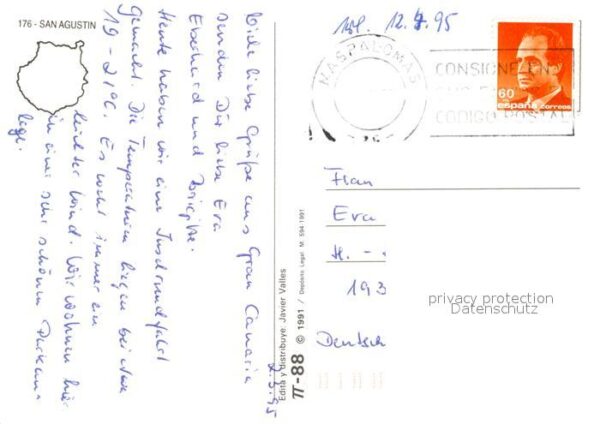 176 - SAN AGUSTIN
Viele liebe Grüße aus Gran Canaria
senden Dir liebe Eva
Eberhard und Brigitte.
Heute haben wir eine Inselrundfahrt
gemacht. Die Temperaturen liegen bei etwa
19 - 21°C. Es weht immer ein
leichter Wind. Wir wohnen hier
in einer sehr schönen Parkan-
lage.
2.3.95
Edita y distribuye: Javier Valles
π-88 © 1991 / Deposito Legal. M. 594-1991
12.4.95
MASPALOMAS
CONSIGNE EN
CODIGO POSTAL
60
españa correos
Frau
Eva
H. - .
193
Deutsch
privacy protection
Datenschutz